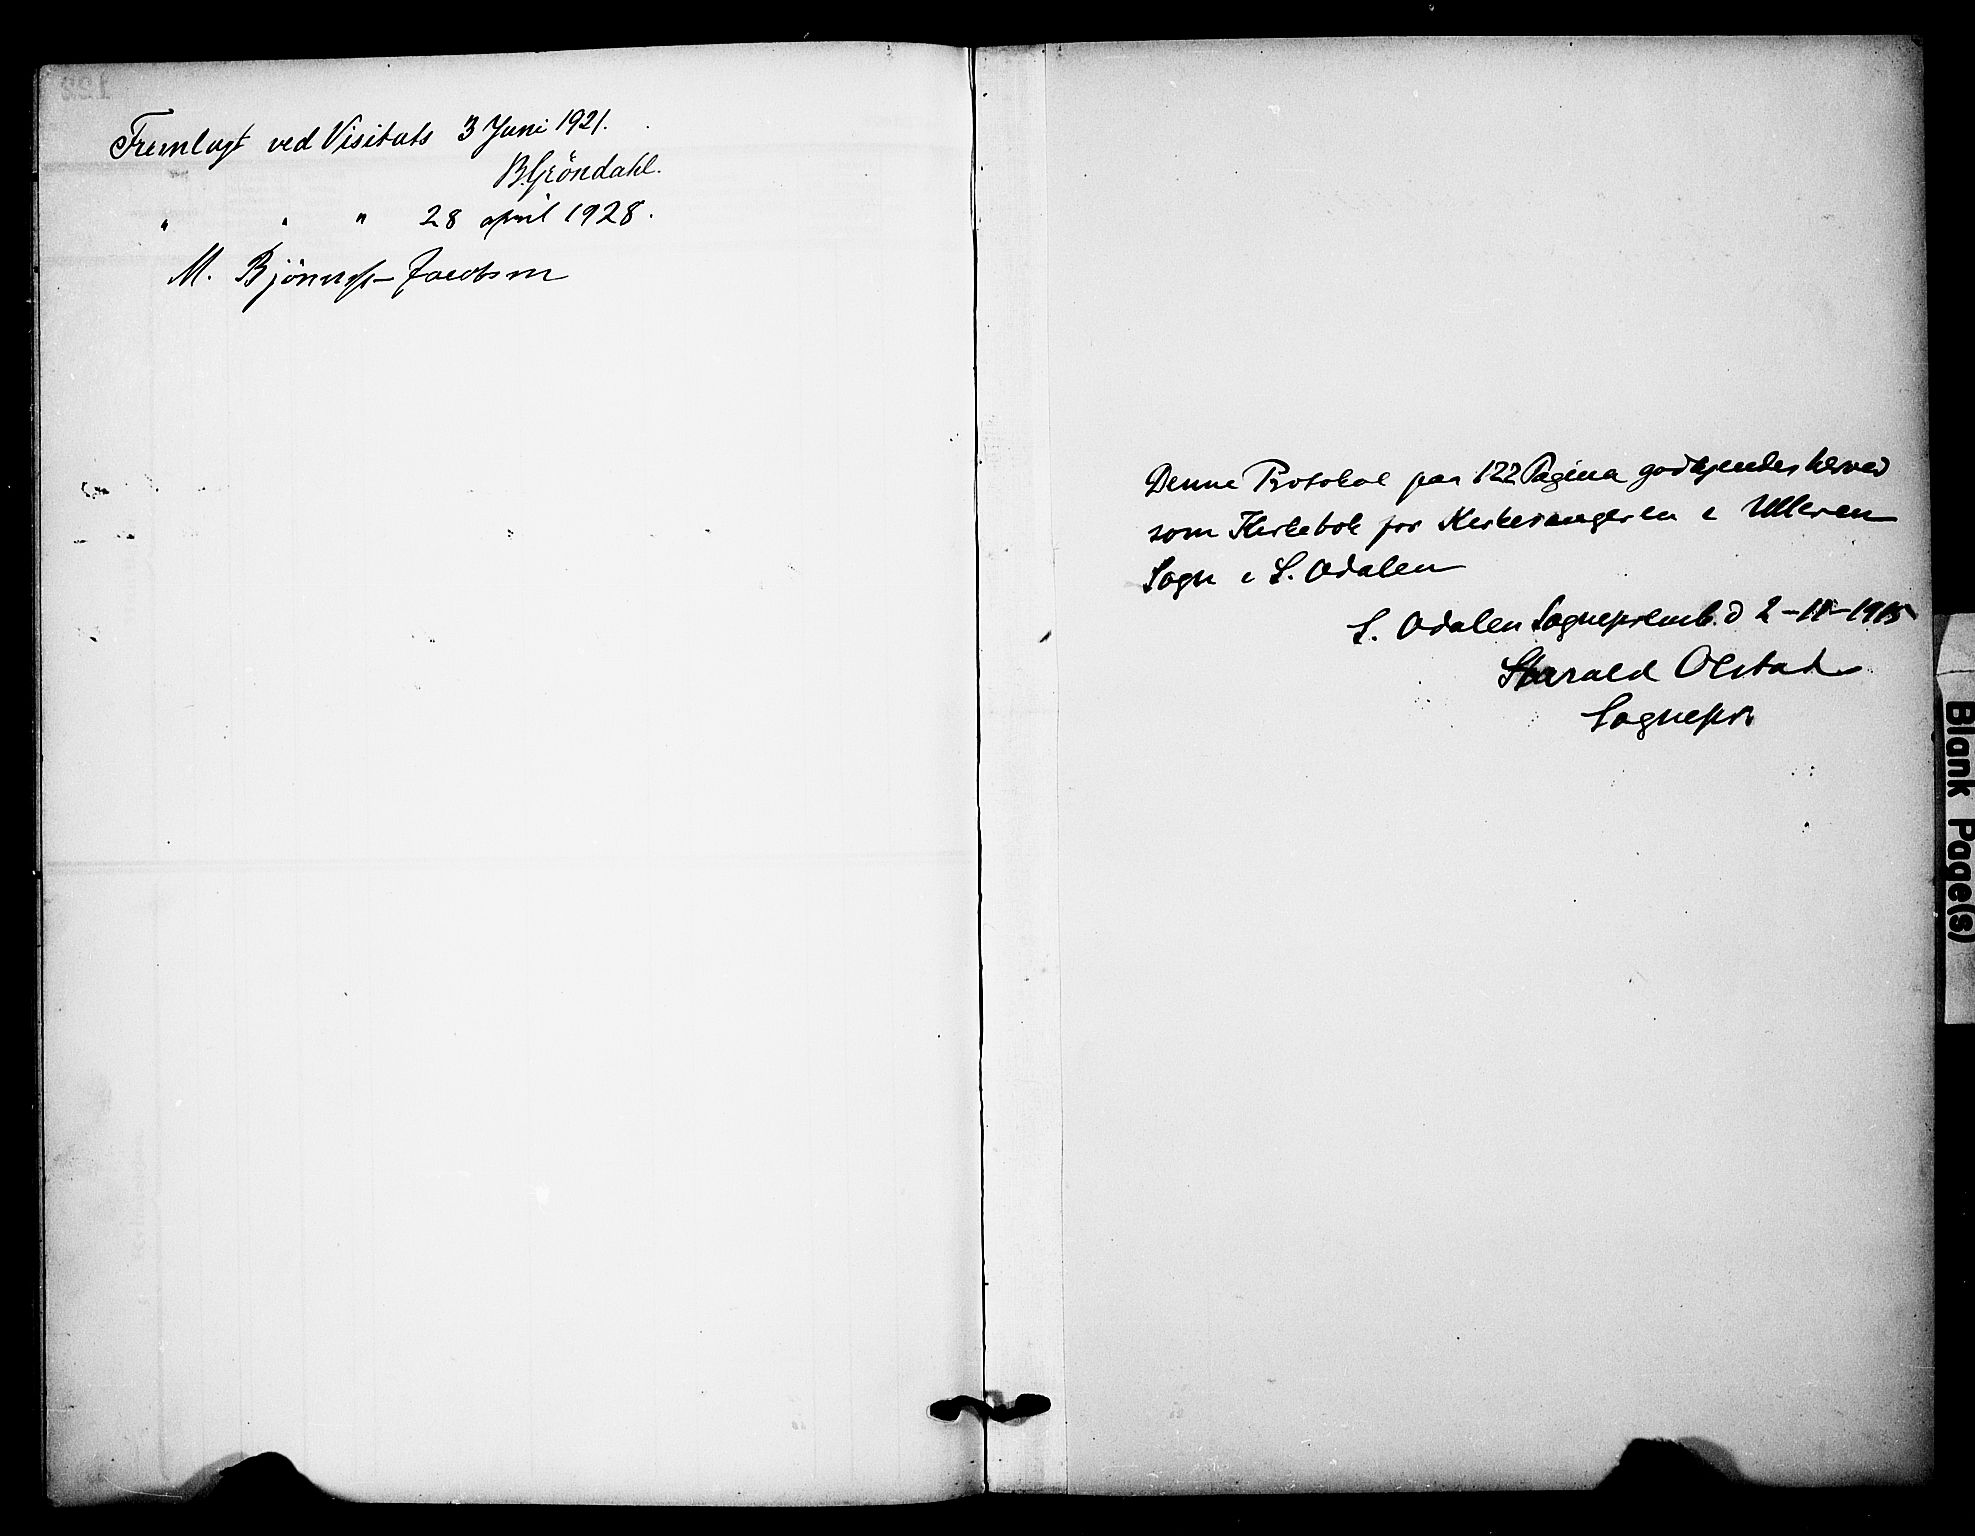 Fremlagt ved Visitats 3 Juni 1921.
B. Gröndahl.
" " " 28 april 1928.
M. Bjönness-Jacobsen
Denne Protokol paa 122 Pagina godkjendes herved
som Kirkebok for Kirkesangeren i Ulleren
Sogn i S. Odalen
S. Odalen Sogneprestemb. d 2-11-1915
Harald Olstad
Sognepr.
Blank Page(s)